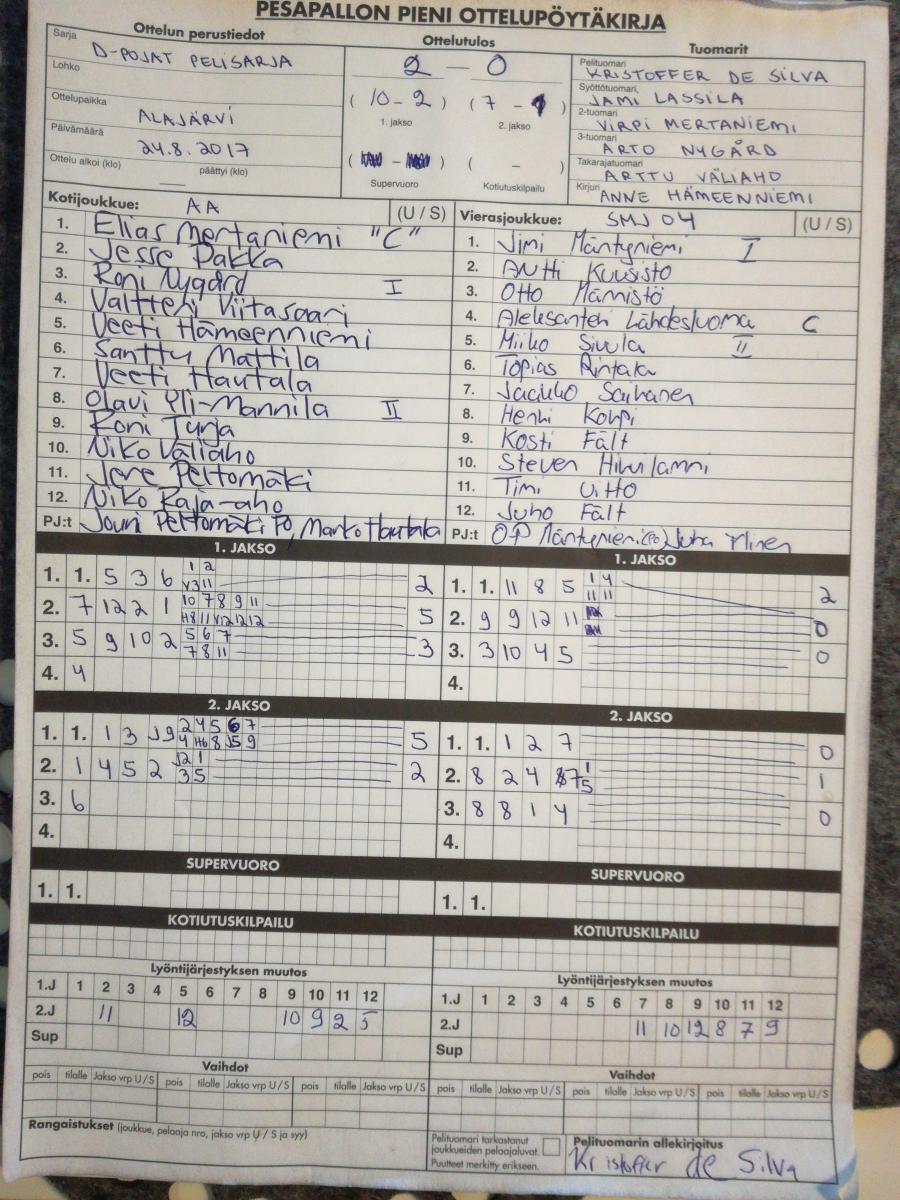 PESAPALLON PIENI OTTELUPÖYTÄKIRJA
Ottelun perustiedot
Sarja D-POJAT PELISARJA
Lohko
Ottelupaikka ALAJÄRVI
Päivämäärä 24.8.2017
Ottelu alkoi (klo) päättyi (klo)
Ottelutulos
2 – 0
( 10 - 2 ) ( 7 - 1 )
1. jakso 2. jakso
( - ) ( - )
Supervuoro Kotiutuskilpailu
Tuomarit
Pelituomari KRISTOFFER DE SILVA
Syöttötuomari, JAMI LASSILA
2-tuomari VIRPI MERTANIEMI
3-tuomari ARTO NYGÅRD
Takarajatuomari ARTTU VÄLIAHO
Kirjuri ANNE HÄMEENNIEMI
Kotijoukkue: AA (U / S)
1. Elias Mertaniemi "C"
2. Jesse Pakka
3. Roni Nygård I
4. Valtteri Viitasaari
5. Veeti Hämeenniemi
6. Santtu Mattila
7. Veeti Hautala
8. Olavi Yli-Mannila II
9. Roni Turja
10. Niko Väliaho
11. Jere Peltomäki
12. Niko Raja-aho
PJ:t Jouni Peltomäki PO, Marko Hautala
Vierasjoukkue: SMJ 04 (U / S)
1. Jimi Mäntyniemi I
2. Antti Kuusisto
3. Otto Männistö
4. Aleksanteri Lähdesluoma C
5. Miiko Sivula II
6. Topias Rintala
7. Jaakko Saihanen
8. Henri Korpi
9. Kosti Fält
10. Steven Hirvilammi
11. Timi Uitto
12. Juho Fält
PJ:t OP Mäntyniemi (PO) Juha
1. JAKSO
1. 1. 5 3 6 1 2 2
V3 11
2. 7 12 2 1 10 7 8 9 11 5
H8 11 V12 12 12
3. 5 9 10 2 5 6 7 3
7 8 11
4. 4
1. JAKSO
1. 1. 11 8 5 1 4 2
11 11
2. 9 9 12 11 0
3. 3 10 4 5 0
4.
2. JAKSO
1. 1. 1 3 J9 2 4 5 6 7 5
4 H6 8 J5 9
2. 1 4 5 2 J2 1 2
3 5
3. 6
4.
2. JAKSO
1. 1. 1 2 7 0
2. 8 2 4 7 1 1
5
3. 8 8 1 4 0
4.
SUPERVUORO
1. 1.
SUPERVUORO
1. 1.
KOTIUTUSKILPAILU
KOTIUTUSKILPAILU
Lyöntijärjestyksen muutos
1.J 1 2 3 4 5 6 7 8 9 10 11 12
2.J 11 12 10 9 2 5
Sup
Lyöntijärjestyksen muutos
1.J 1 2 3 4 5 6 7 8 9 10 11 12
2.J 11 10 12 8 7 9
Sup
Vaihdot
pois tilalle Jakso vrp U / S pois tilalle Jakso vrp U / S pois tilalle Jakso vrp U / S
Vaihdot
pois tilalle Jakso vrp U / S pois tilalle Jakso vrp U / S pois tilalle Jakso vrp U / S
Rangaistukset (joukkue, pelaaja nro, jakso vrp U / S ja syy)
Pelituomari tarkastanut
joukkueiden pelaajaluvat.
Puutteet merkitty erikseen.
Pelituomarin allekirjoitus
Kristoffer de Silva